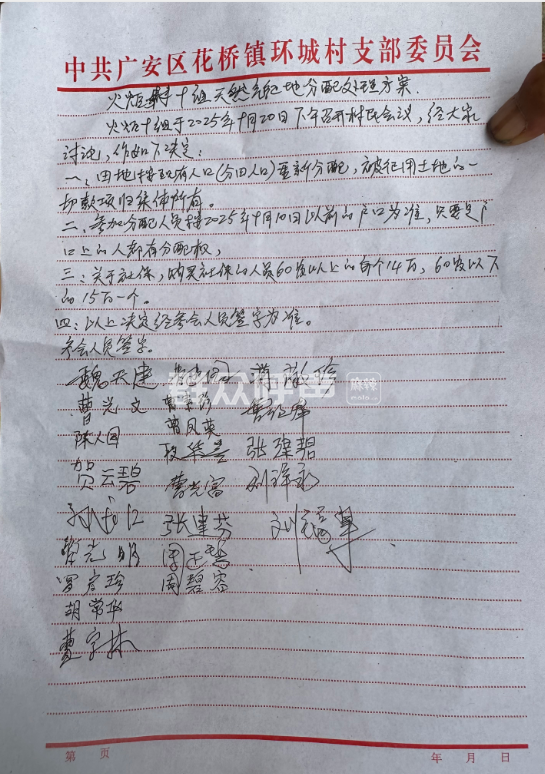 中共广安区花桥镇环城村支部委员会
火炬十组天然气配地分配处理方案.
火炬十组于2025年9月20日下午召开村民会议，经大家
讨论，作如下决定：
一、田地按现有人口(分田人口)重新分配，被征用土地的一
切款项归集体所有。
二、参加分配人员按2025年9月10日以前的户口为准，只要是户
口上的人都有分配权，
三：关于社保，购买社保的人员60岁以上的每个14万，60岁以下
的15万一个。
四：以上决定经参会人员签字为准。
参会人员签字。
魏天建
群众呼声 麻辣
曹光文
陈人国 曹凤英
张建碧
贺云碧 曹光富
张建芬
曹光明
罗启珍 周碧容
胡常
第 页 年 月 日